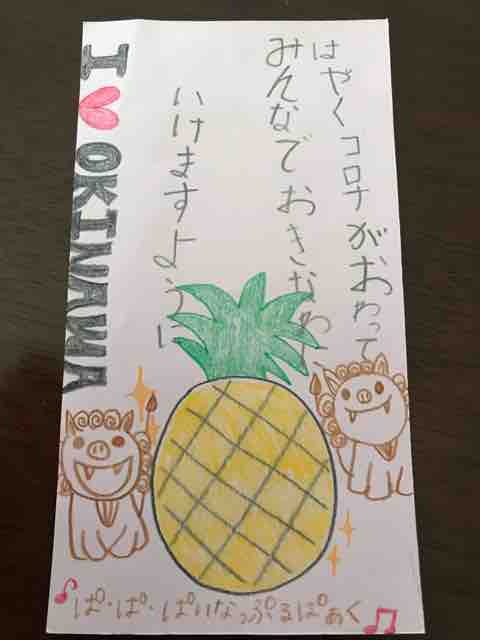 はやくコロナがおわって
みんなでおきなわに
いけますように
I ♥ OKINAWA
ぱ・ぱ・ぱいなっぷるぱぁく